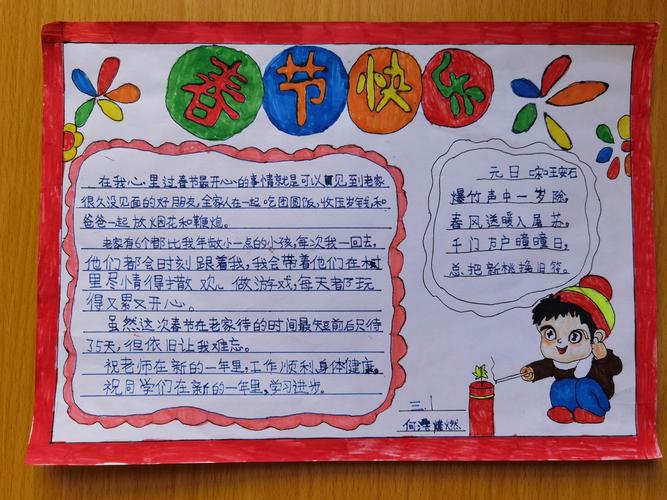 春节快乐
在我心里过春节最开心的事情就是可以见到老家
很久没见面的好朋友,全家人在一起吃团圆饭,收压岁钱,和
爸爸一起放烟花和鞭炮。
老家有6个都比我年做小一点的小孩,每次我一回去,
他们都会时刻跟着我,我会带着他们在村
里尽情得撒欢 做游戏,每天都玩
得又累又开心。
虽然这次春节在老家待的时间最短前后只待
35天,但依旧让我难忘。
祝老师在新的一年里,工作顺利,身体健康。
祝同学们在新的一年里,学习进步。
元日 宋 王安石
爆竹声中一岁除,
春风送暖入屠苏,
千门万户曈曈日,
总把新桃换旧符。
三.1
何 燃